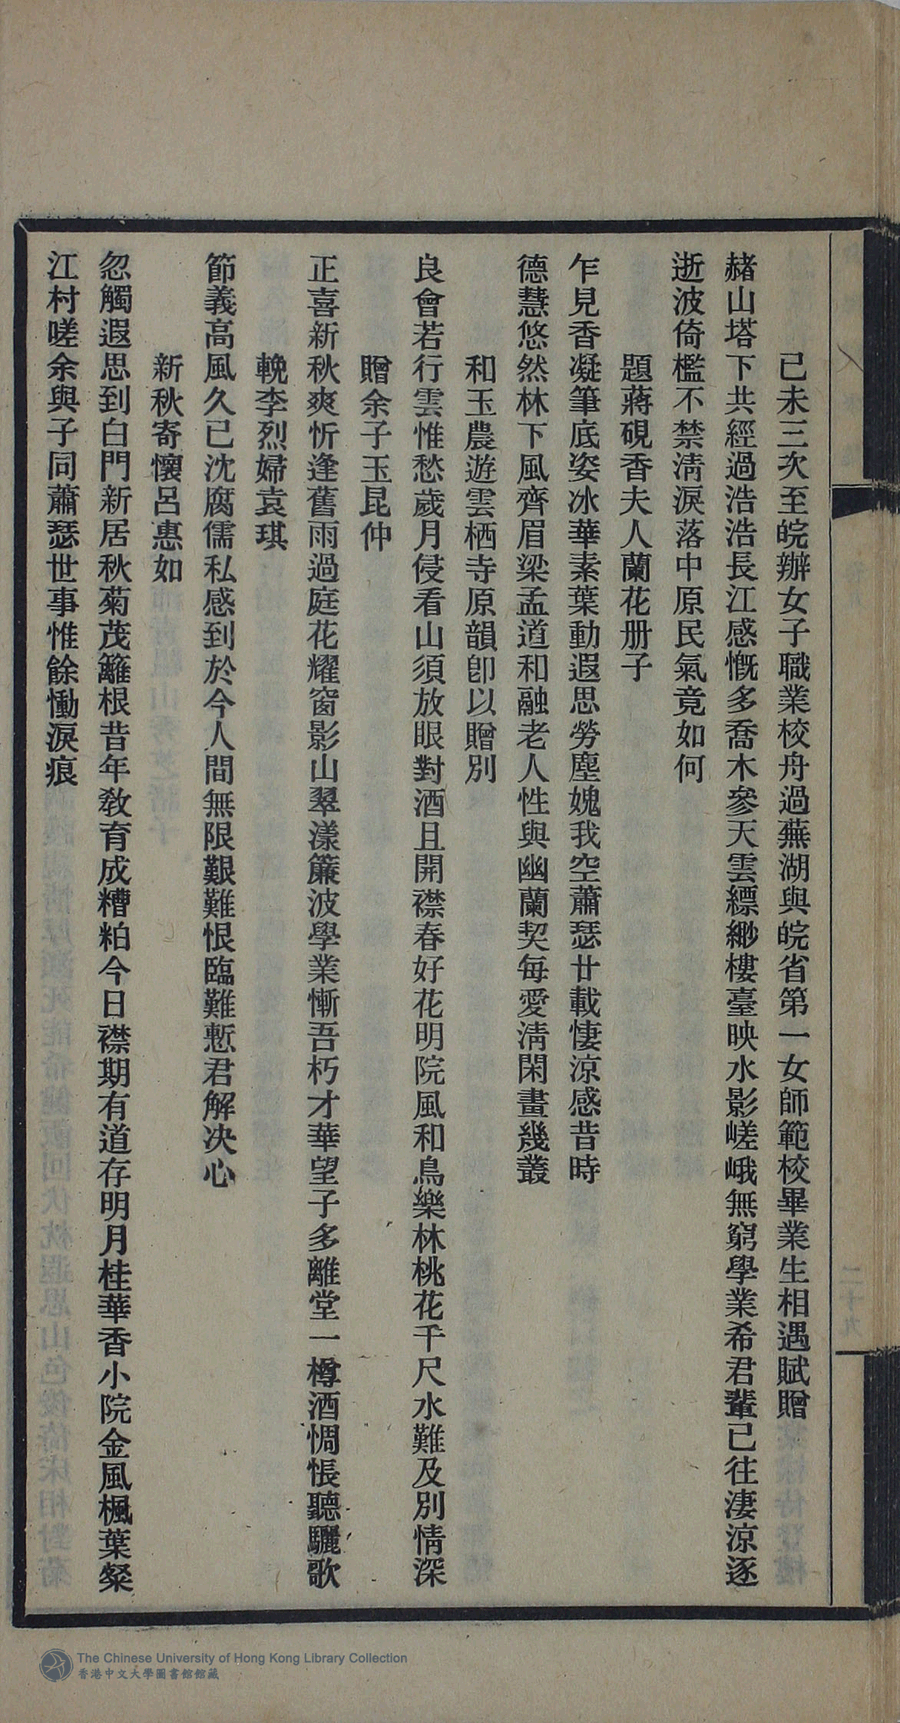 己未三次至皖辦女子職業校舟過蕪湖與皖省第一女師範校畢業生相遇賦贈
赭山塔下共經過浩浩長江感慨多喬木參天雲縹緲樓臺映水影嵯峨無窮學業希君輩已往淒涼逐
逝波倚檻不禁清淚落中原民氣竟如何
題蔣硯香夫人蘭花册子
乍見香凝筆底姿冰華素葉動遐思勞塵媿我空蕭瑟廿載悽涼感昔時
德慧悠然林下風齊眉梁孟道和融老人性與幽蘭契每愛淸閑畫幾叢
和玉農遊雲栖寺原韻卽以贈別
良會若行雲惟愁歲月侵看山須放眼對酒且開襟春好花明院風和鳥樂林桃花千尺水難及別情深
贈余子玉昆仲
正喜新秋爽忻逢舊雨過庭花耀窗影山翠漾簾波學業慚吾朽才華望子多離堂一樽酒惆悵聽驪歌
輓李烈婦袁琪
節義高風久已沈腐儒私感到於今人間無限艱難恨臨難慙君解決心
新秋寄懷呂惠如
忽觸遐思到白門新居秋菊茂籬根昔年敎育成糟粕今日襟期有道存明月桂華香小院金風楓葉粲
江村嗟余與子同蕭瑟世事惟餘慟淚痕
The Chinese University of Hong Kong Library Collection
香港中文大學圖書館館藏